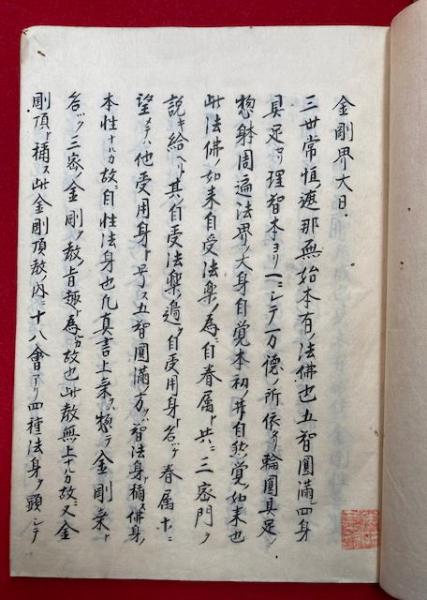 金剛界大日
三世常恒遮那無始本有ノ法佛也五智圓滿四身
具足シテ理智本ヨリ一ニシテ万徳ノ所依タリ輪圓具足ノ
惣躰周遍法界ノ大身自覚本初ノ自然覚如来也
此法佛ノ如来自受法樂ノ為ニ自眷属ト共ニ三密門ヲ
説キ給ヘリ其自受法樂ノ邊ヲ自受用身ト名ク眷属ホニ
望メテハ他受用身ト号ス五智圓滿ノ方ヲハ智法身ト稱ス佛身ノ
本性ナルカ故ニ自性法身也凡真言上乗ヲ惣テ金剛乗ト
名ク三密金剛ヲ教肯趣ト為カ故也此教無上ナルカ故ニ又金
剛頂ト稱ス此金剛頂教内ニ十八會アリ四種法身ヲ顕シテ